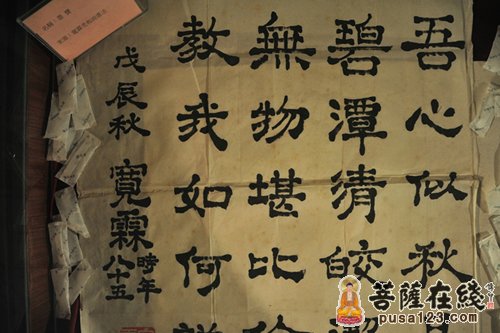 吾心似秋
碧潭清皎
無物堪比
教我如何
戊辰秋 寬霖 時年八十五
菩薩在綫
pusa123.com